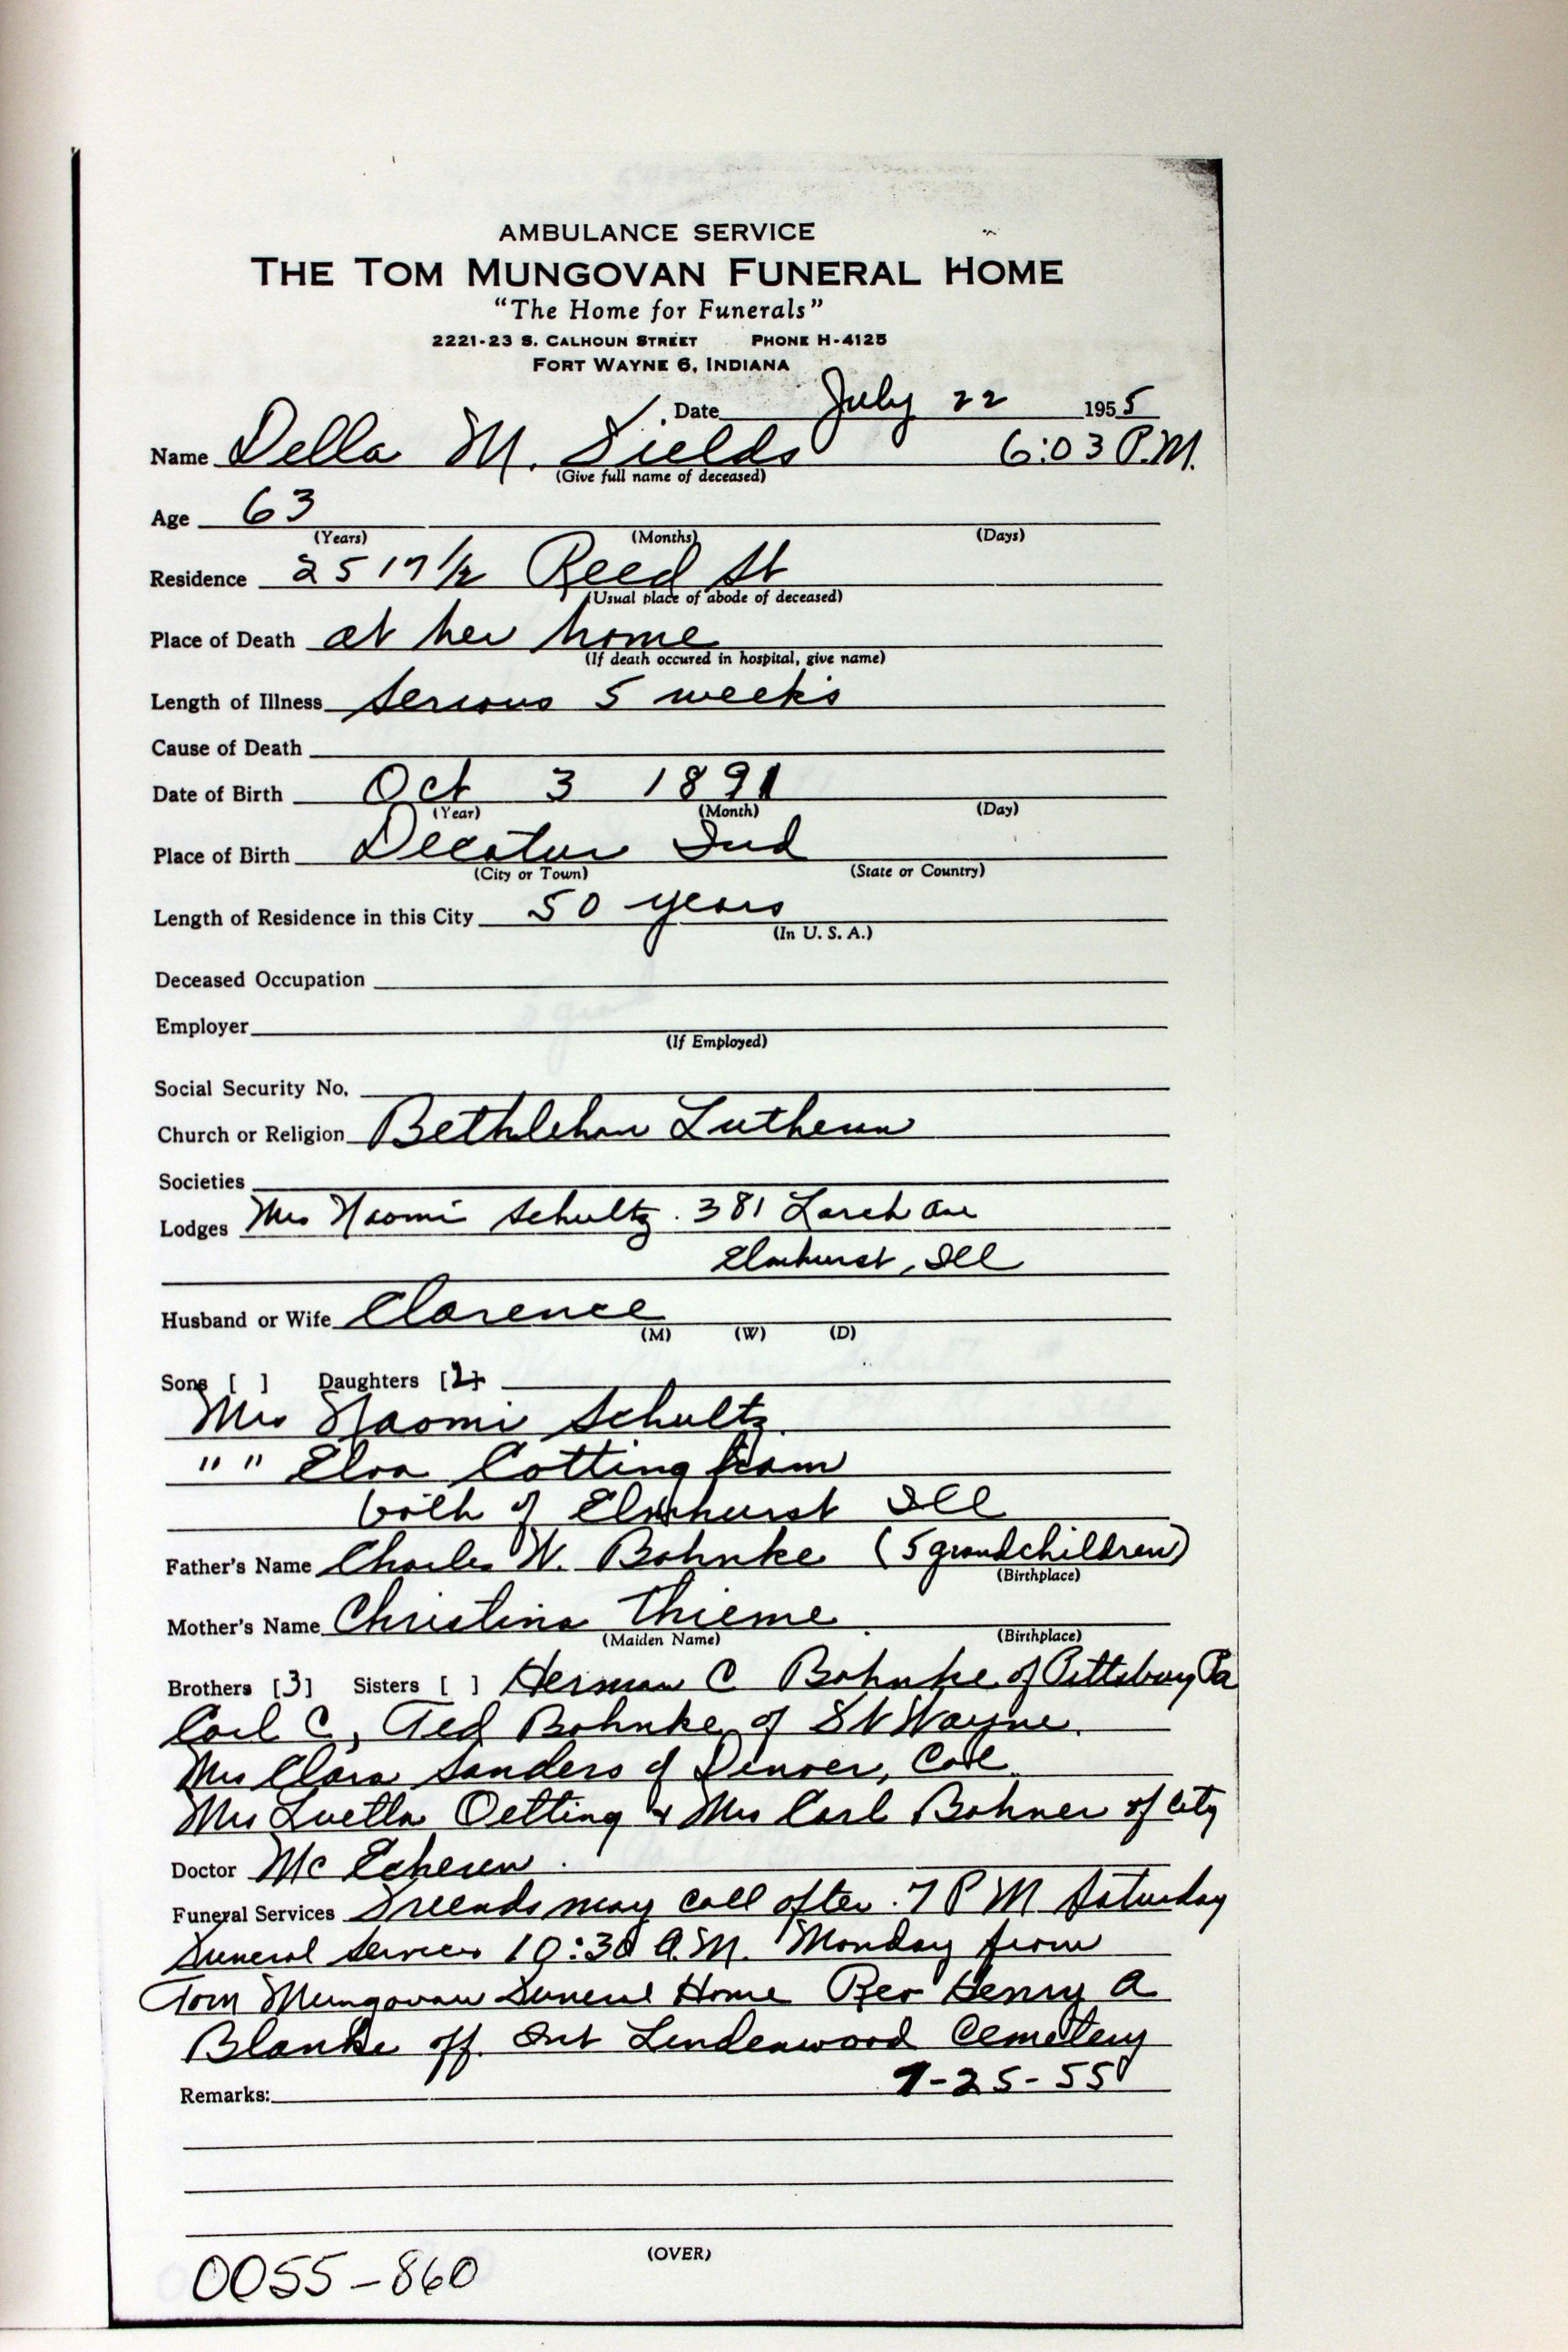 AMBULANCE SERVICE
THE TOM MUNGOVAN FUNERAL HOME
"The Home for Funerals"
2221-23 S. CALHOUN STREET PHONE H-4125
FORT WAYNE 6, INDIANA
Date July 22 1955
Name Della M. Fields 6:03 P.M.
(Give full name of deceased)
Age 63
(Years) (Months) (Days)
Residence 2517 1/2 Reed St
(Usual place of abode of deceased)
Place of Death at her home
(If death occured in hospital, give name)
Length of Illness serious 5 weeks
Cause of Death
Date of Birth Oct 3 1891
(Year) (Month) (Day)
Place of Birth Decatur Ind
(City or Town) (State or Country)
Length of Residence in this City 50 years
(In U. S. A.)
Deceased Occupation
Employer
(If Employed)
Social Security No.
Church or Religion Bethlehem Lutheran
Societies
Lodges Mrs Naomi Schultz. 381 Larch Ave
Elmhurst, Ill
Husband or Wife Clarence
(M) (W) (D)
Sons [ ] Daughters [2]
Mrs Naomi Schultz
" " Elva Cottingham
both of Elmhurst Ill
Father's Name Charles W. Bohnke (5 grandchildren)
(Birthplace)
Mother's Name Christina Thieme
(Maiden Name) (Birthplace)
Brothers [3] Sisters [ ] Herman C Bohnke of Pittsburg Pa
Carl C, Ted Bohnke of Ft Wayne.
Mrs Clara Sanders of Denver, Col.
Mrs Luetta Oetting & Mrs Carl Bohner of City
Doctor Mc
Funeral Services Friends may call after 7 P M Saturday
Funeral Services 10:30 A.M. Monday from
Tom Mungovan Funeral Home Rev Henry A
Blanke off. Int Lindenwood Cemetery
7-25-55
Remarks:
(OVER)
0055-860